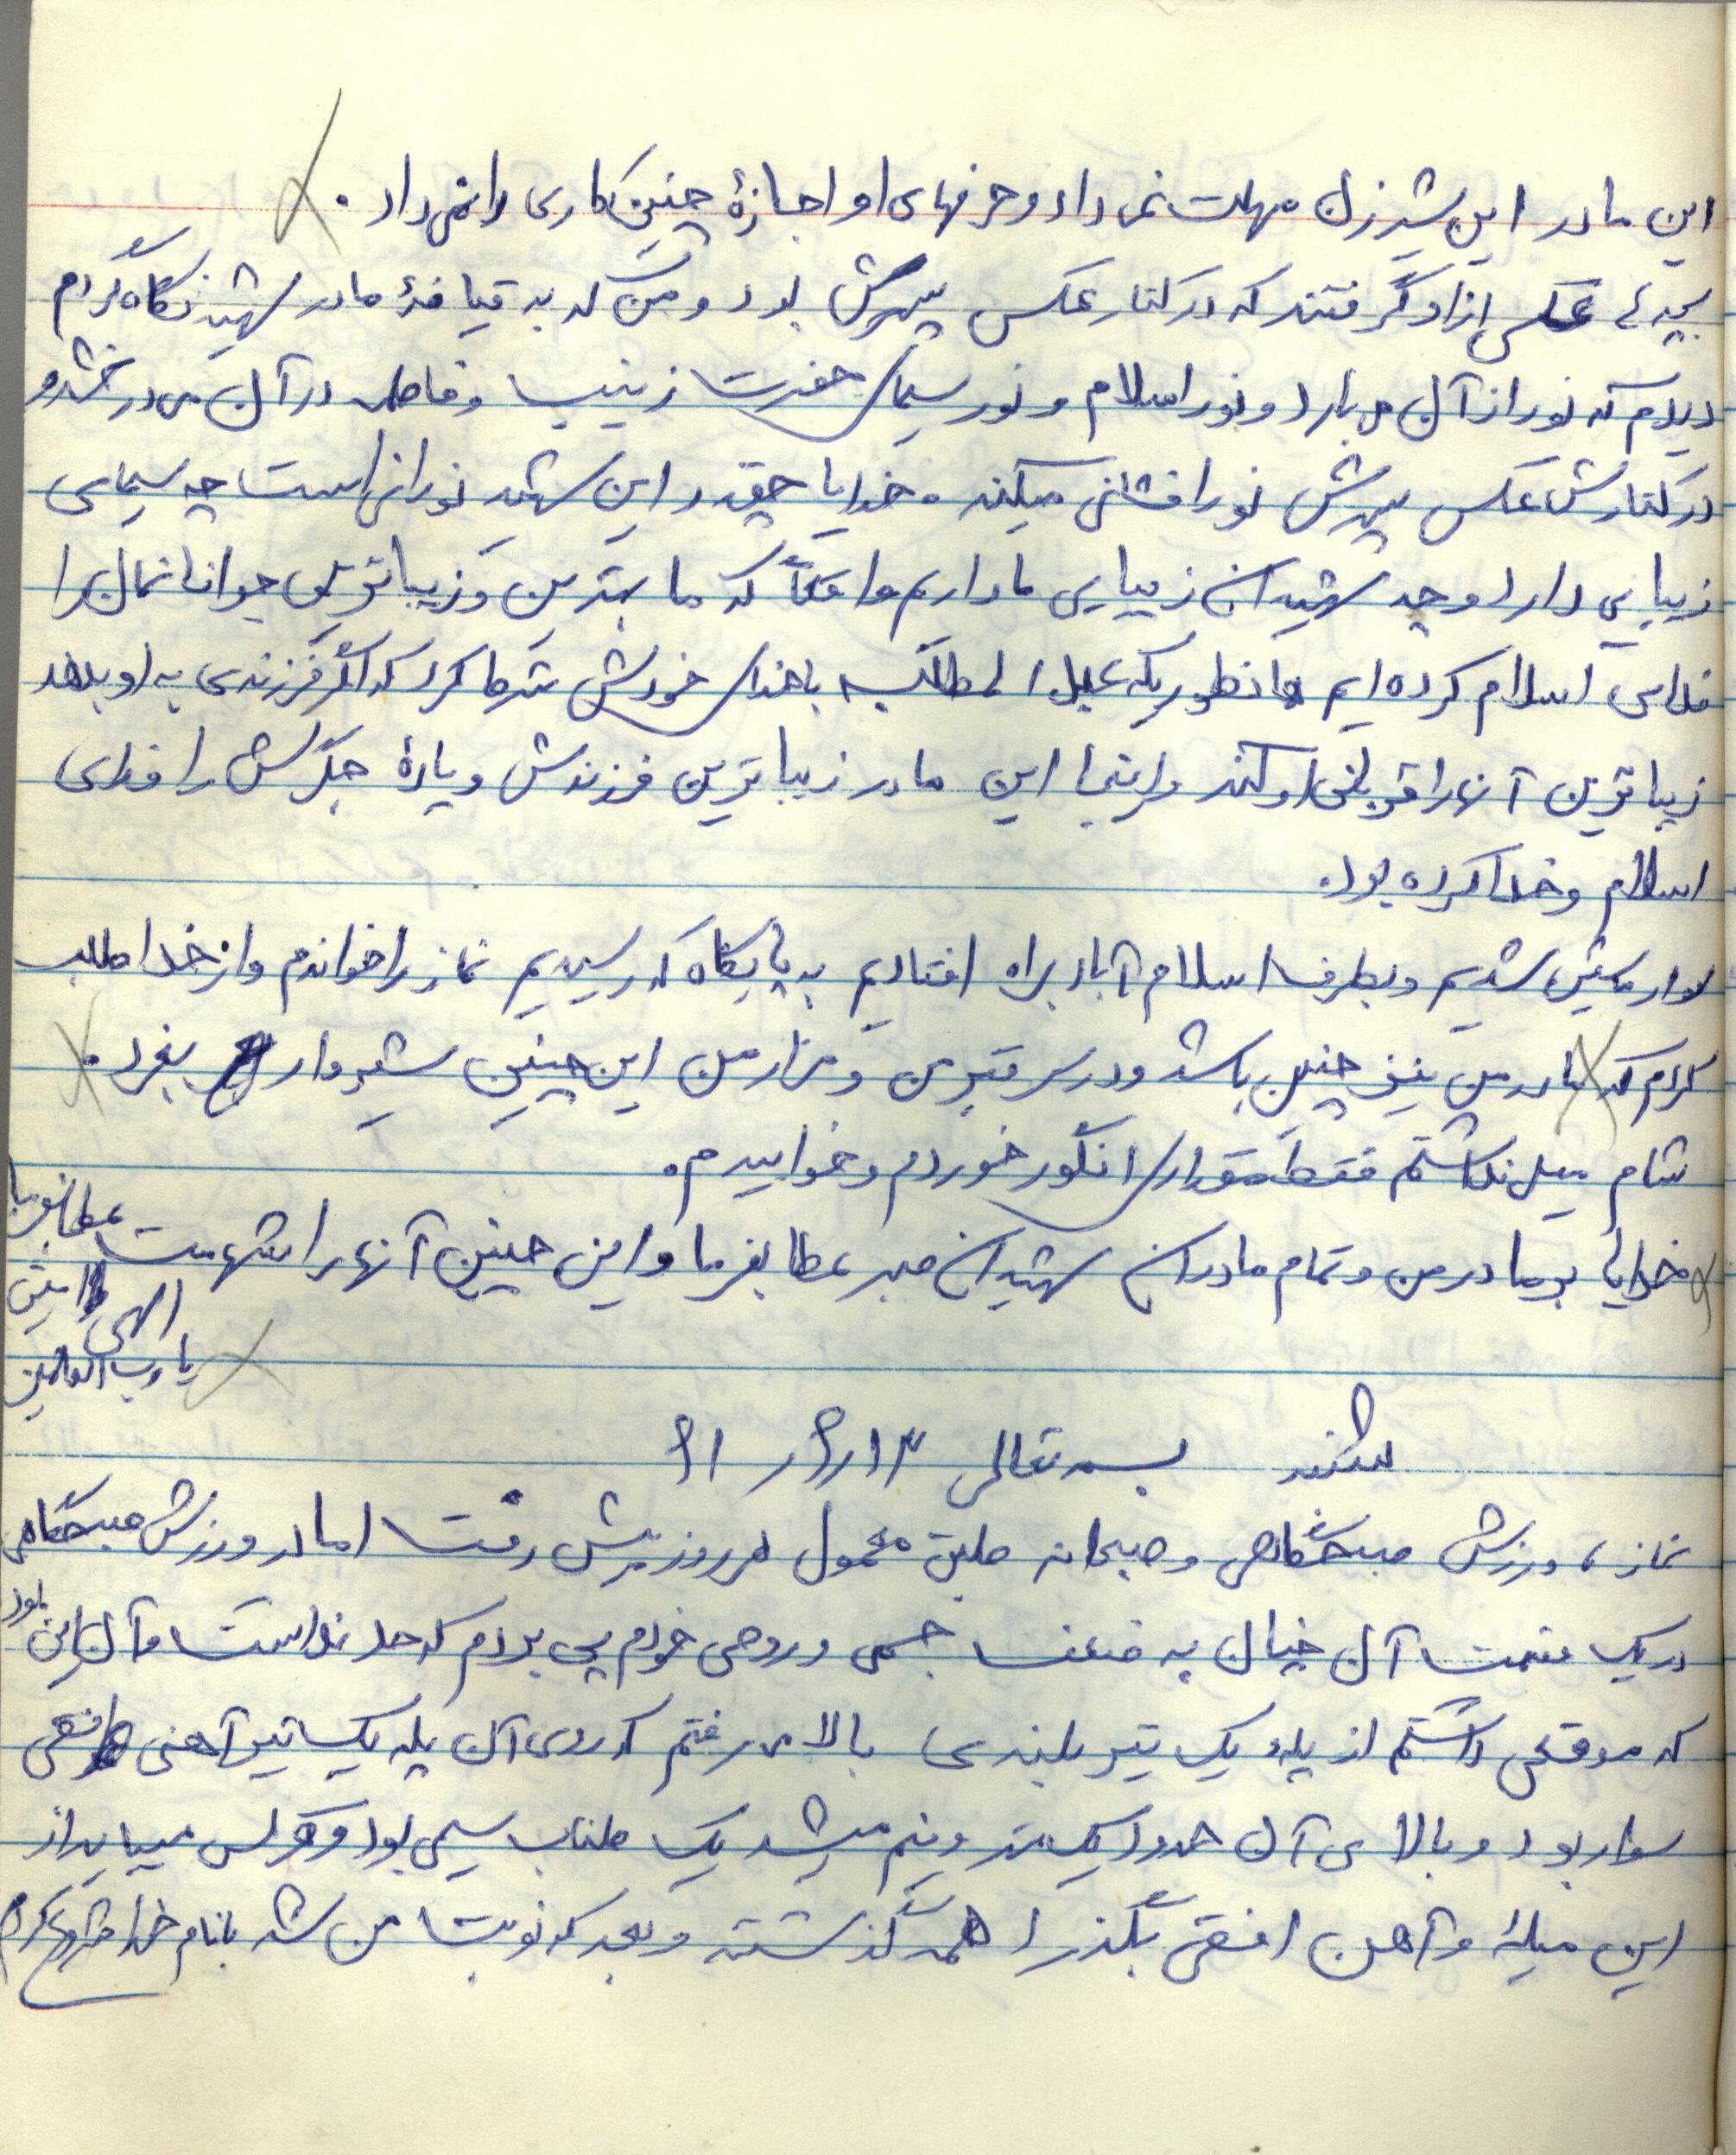 این مادر این شیرزن مهلت نمی داد و حرفهای او اجازهٔ چنین کاری را نمی داد .
بچه ها عکسی از او گرفتند که در کنار عکس پسرش بود و من که به قیافهٔ مادر شهید نگاه کردم
دیدم که نور از آن می بارد و نور اسلام و نور سیمای حضرت زینب و فاطمه در آن می درخشد و
در کنارش عکس پسرش نورافشانی میکند . خدایا چقدر این شهید نورانی است چه سیمای
زیبایی دارد و چه شهیدان زیبایی ما داریم واقعاً که ما بهترین و زیباترین جوانانمان را
فدای اسلام کرده ایم همانطوریکه عبدالمطلب با خدای خودش شرط کرد که اگر فرزندی به او بدهد
زیباترین آنها را قربانی او کند و اینجا این مادر زیباترین فرزندش و پارهٔ جگرش را فدای
اسلام و خدا کرده بود.
سوار ماشین شدیم و بطرف اسلام آباد براه افتادیم به پایگاه که رسیدیم نماز را خواندم و از خدا طلب
کردم که مادر من نیز چنین باشد و در سر قبر من و مزار من این چنین شیروار بغرد .
شام میل نداشتم فقط مقداری انگور خوردم و خوابیدم .
خدایا به مادر من و تمام مادران شهیدان صبر عطا بفرما و این چنین آنها را شهامت عطا بفرما
الهی آمین
یا رب العالمین
بسمه تعالی
نماز ، ورزش صبحگاهی و صبحانه طبق معمول هر روز پیش رفت اما در ورزش صبحگاهی
در یک قسمت آن خیال به ضعف جسمی و روحی خودم پی بردم که حد نداشت و آن این بود
که موقعی داشتم از پله و یک تیر بلندی بالا می رفتم که روی آن پله یک تیر آهنی افقی
سوار بود و بالای آن حدود یک متر و نیم میشد یک طناب سیمی بود و هر کس میباید از
این میله و آهن افقی بگذرد همه گذشتند و بعد که نوبت من شد با نام خدا شروع کردم